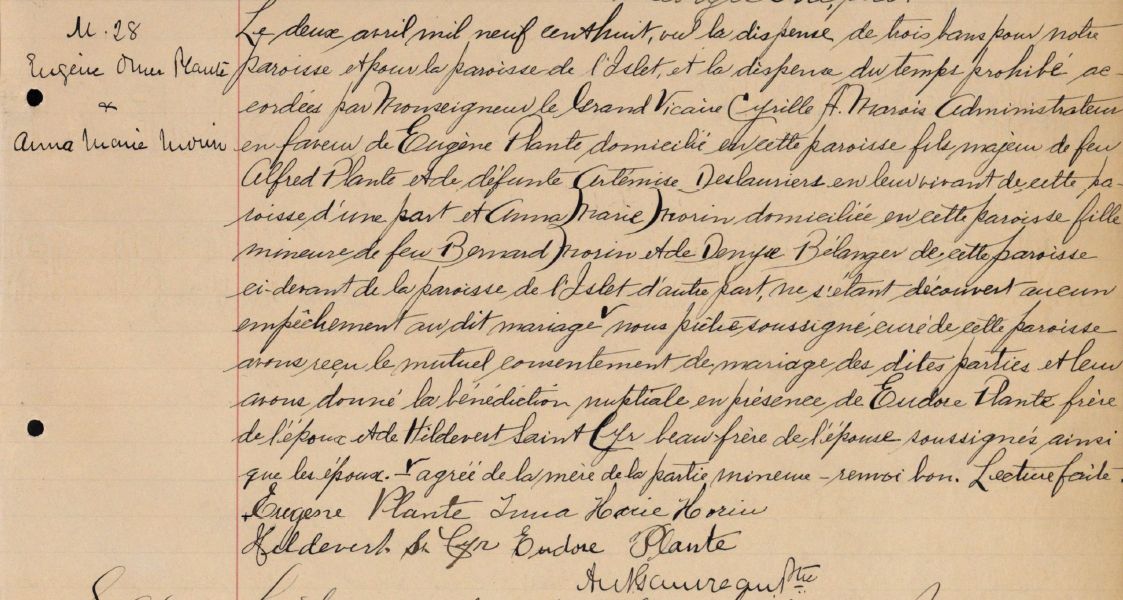 M. 28
Eugène Omer Plante
&
Anna Marie Morin
Le deux avril mil neuf cent huit, vu la dispense de trois bans pour notre
paroisse et pour la paroisse de l'Islet, et la dispense du temps prohibé ac-
cordées par Monseigneur le Grand Vicaire Cyrille A. Marois Administrateur
en faveur de Eugène Plante domicilié en cette paroisse fils majeur de feu
Alfred Plante et de défunte Artémise Deslauriers en leur vivant de cette pa-
roisse d'une part et Anna Marie Morin domiciliée en cette paroisse fille
mineure de feu Bernard Morin et de Denyse Bélanger de cette paroisse
ci-devant de la paroisse de l'Islet d'autre part, ne s'étant découvert aucun
empêchement au dit mariage v nous prêtre soussigné curé de cette paroisse
avons reçu le mutuel consentement de mariage des dites parties et leur
avons donné la bénédiction nuptiale en présence de Eudore Plante frère
de l'époux et de Hildevert Saint Cyr beau frère de l'épouse soussignés ainsi
que les époux. v agréé de la mère de la partie mineure - renvoi bon. Lecture faite.
Eugene Plante Anna Marie Morin
Hildevert St Cyr Eudore Plante
Ptre